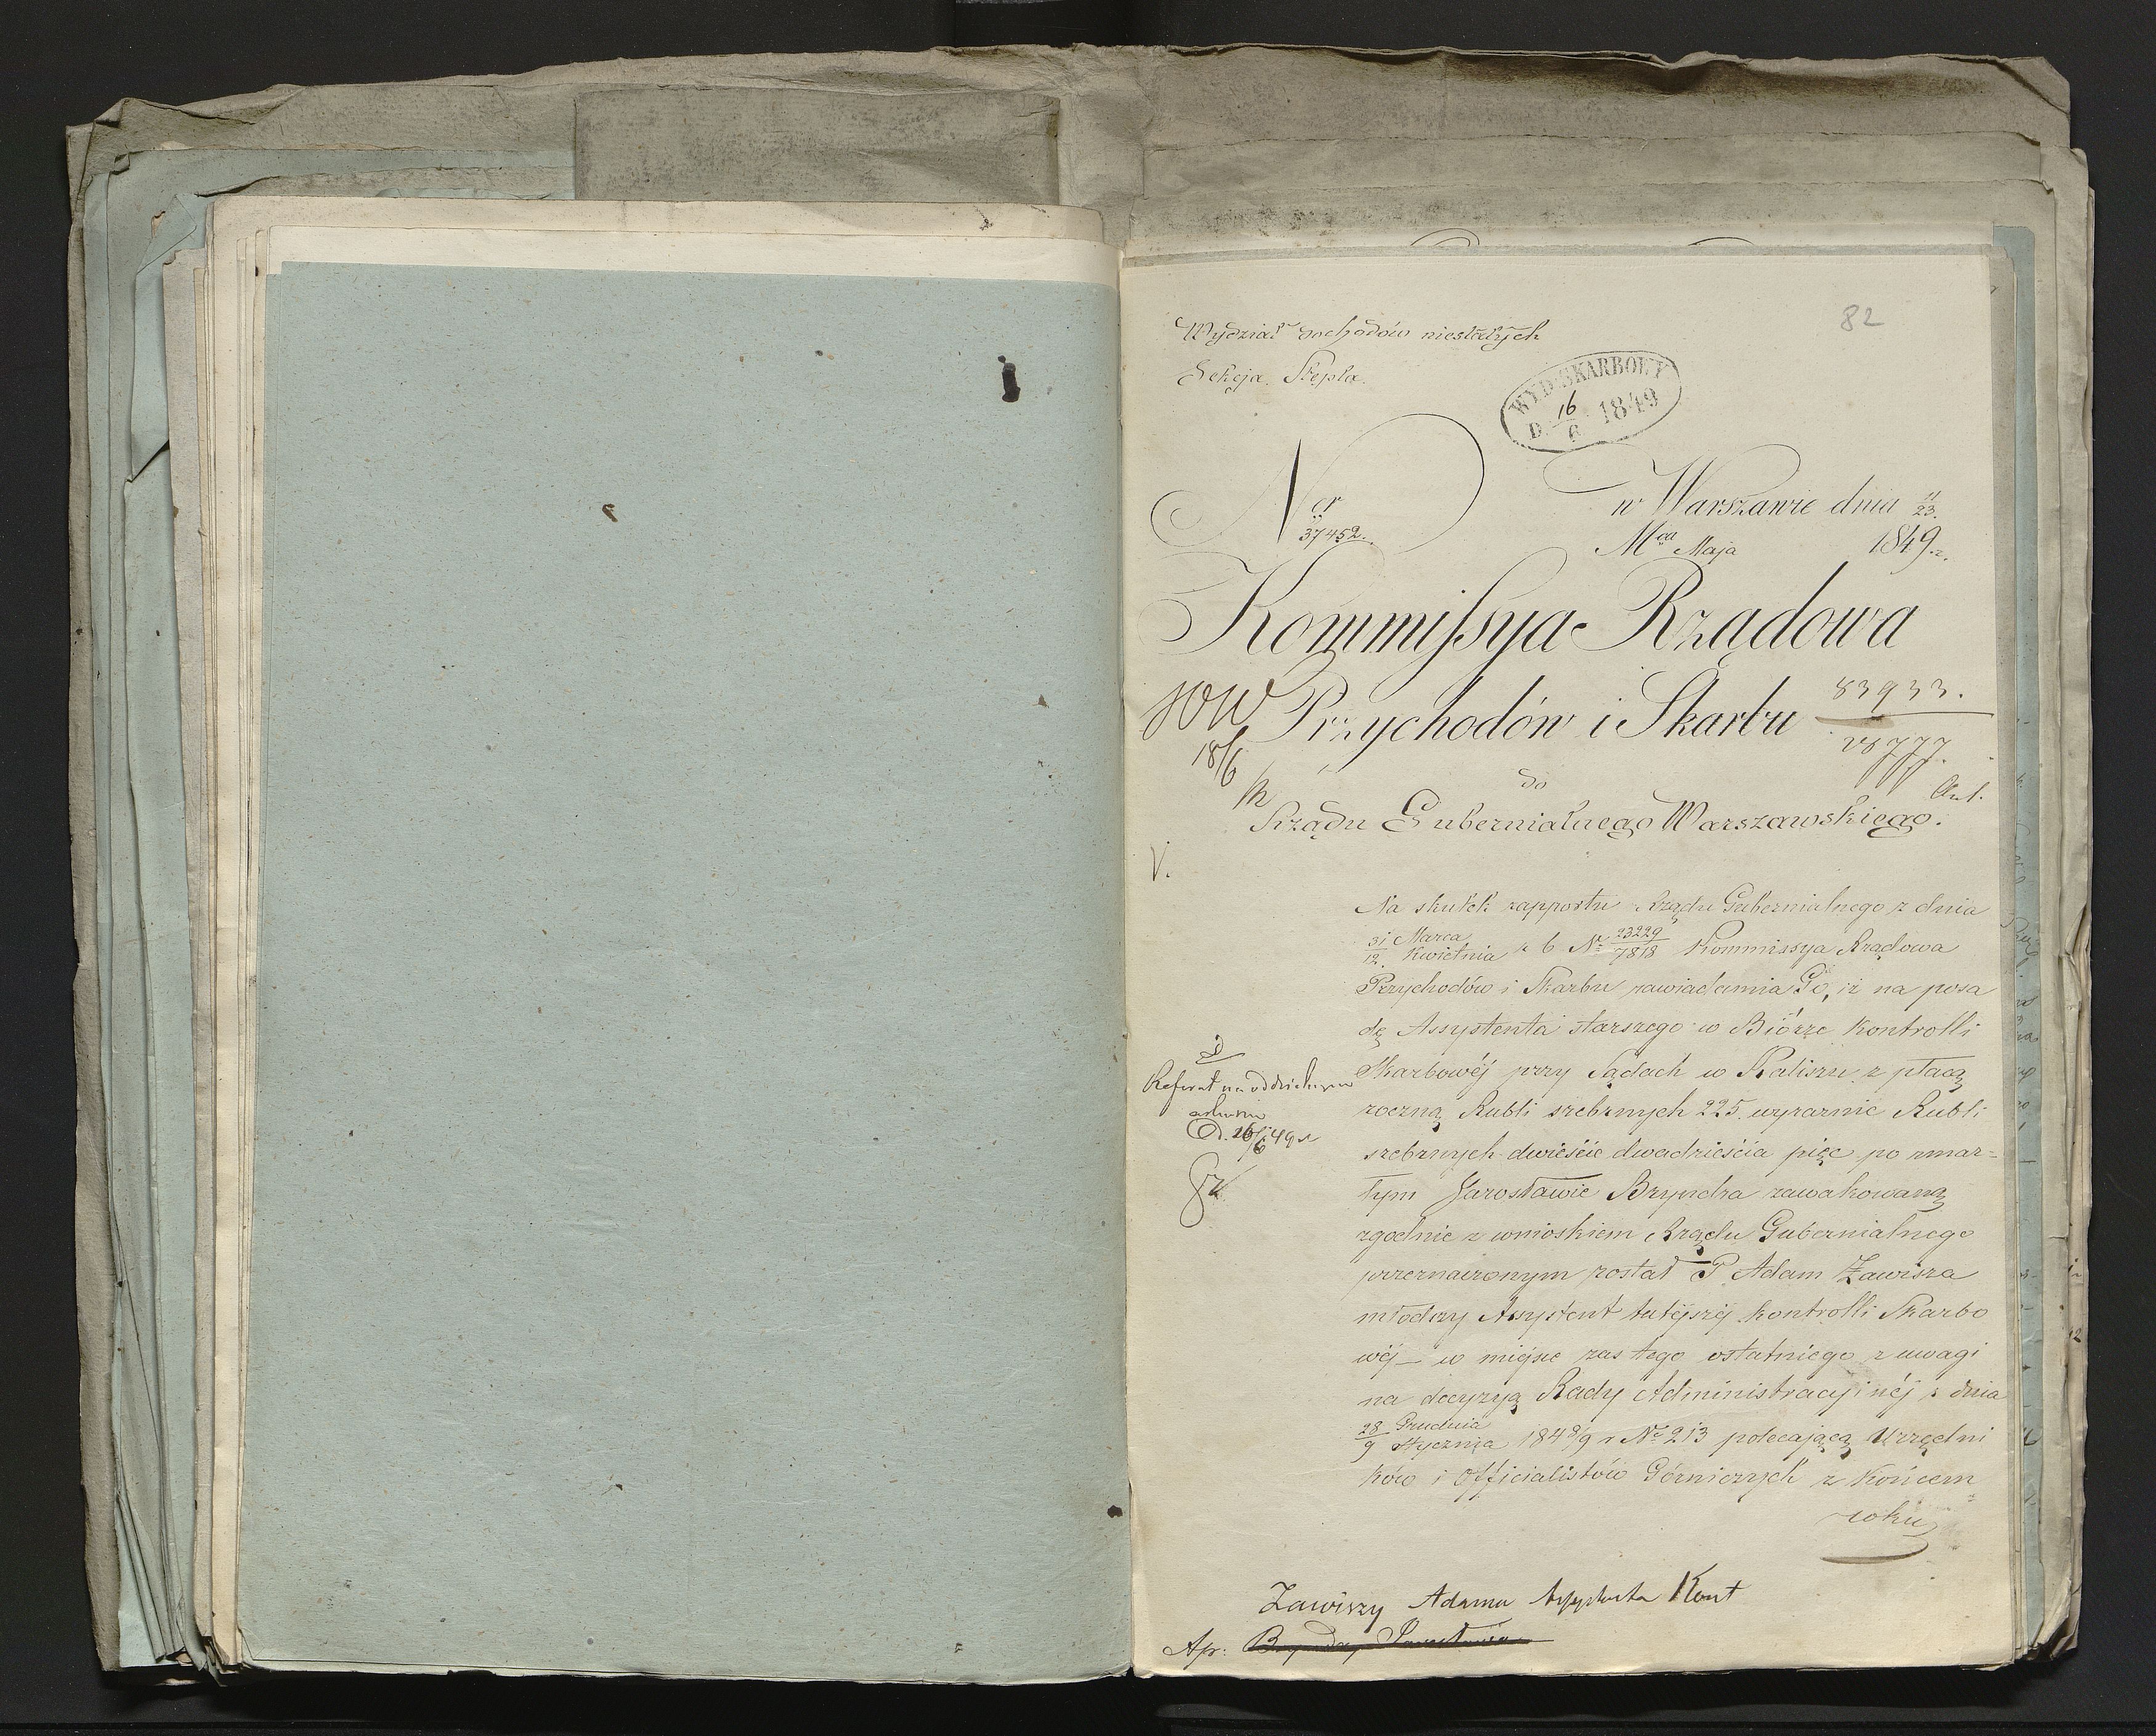 82
Wydział dochodów niestałych
Sekcja Stępla.
WYD. SKARBOWY
D. 16/6 1849
Ner
37452.
w Warszawie dnia 11/23.
Mca Maja 1849 r.
Kommissya Rządowa
Przychodów i Skarbu
83933.
28777.
18/6
do
Rządu Gubernialnego Warszawskiego.
V.
Na skutek rapportu Rządu Gubernialnego z dnia
31 Marca / 12 Kwietnia r b Nr 23229/7818 Kommissya Rządowa
Przychodów i Skarbu zawiadamia Go, iż na posa
dę Assystenta starszego w Biórze Kontrolli
Skarbowéj przy Sądach w Kaliszu z płacą
roczną Rubli srebrnych 225. wyraźnie Rubli
srebrnych dwieście dwadzieścia pięc po zmar-
łym Jarosławie Bryndza zawakowaną
zgodnie z wnioskiem Rządu Gubernialnego
przeznaczonym został P. Adam Zawisza
młodszy Assystent tutéjszéj Kontrolli Skarbo
wéj – w miéjsce zas tego ostatniego z uwagi
na decyzyą Rady Administracyjnéj z dnia
28 Grudnia / 9 Stycznia 1848/9 r Nr 213 polecającą Urzędni
ków i Officialistów Górniczych z końcem
roku
Referat na oddzielnym
arkuszu
D. 16/6 49 r
Zawiszy Adama Assystenta Kont